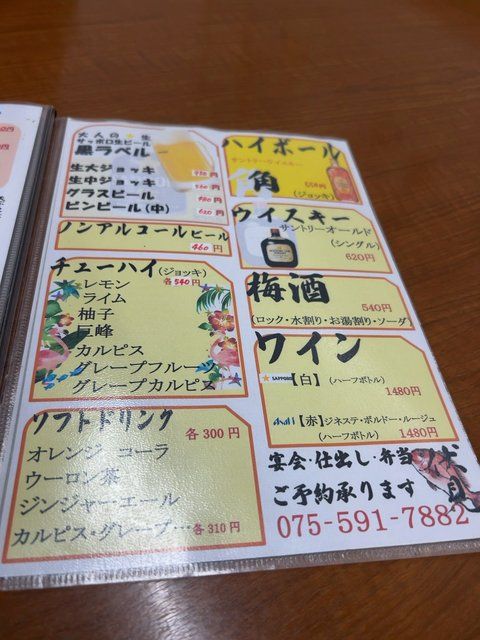 大人の★生
サッポロ生ビール
黒ラベル
生大ジョッキ
生中ジョッキ
グラスビール
ビンビール(中) 620円
ノンアルコールビール
460円
チューハイ(ジョッキ)各540円
レモン
ライム
柚子
巨峰
カルピス
グレープフルーツ
グレープカルピス
ソフトドリンク 各300円
オレンジ コーラ
ウーロン茶
ジンジャーエール
カルピス・グレープ…各310円
ハイボール
サントリーウイスキー
角
(ジョッキ)
ウイスキー
サントリーオールド
(シングル)
620円
梅酒
540円
(ロック・水割り・お湯割り・ソーダ)
ワイン
SAPPORO【白】(ハーフボトル)
1480円
Asahi【赤】ジネステ・ボルドー・ルージュ
(ハーフボトル) 1480円
宴会・仕出し・弁当
ご予約承ります
075-591-7882